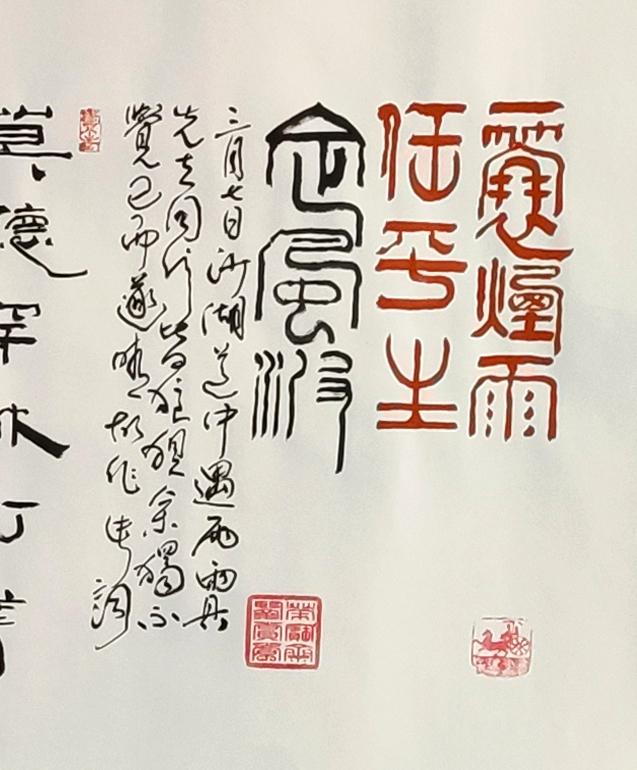 一蓑煙雨
任平生
定風波
三月七日沙湖道中遇雨雨具
先去同行皆狼狽余獨不
覺已而遂晴故作此詞
莫聽穿林打葉